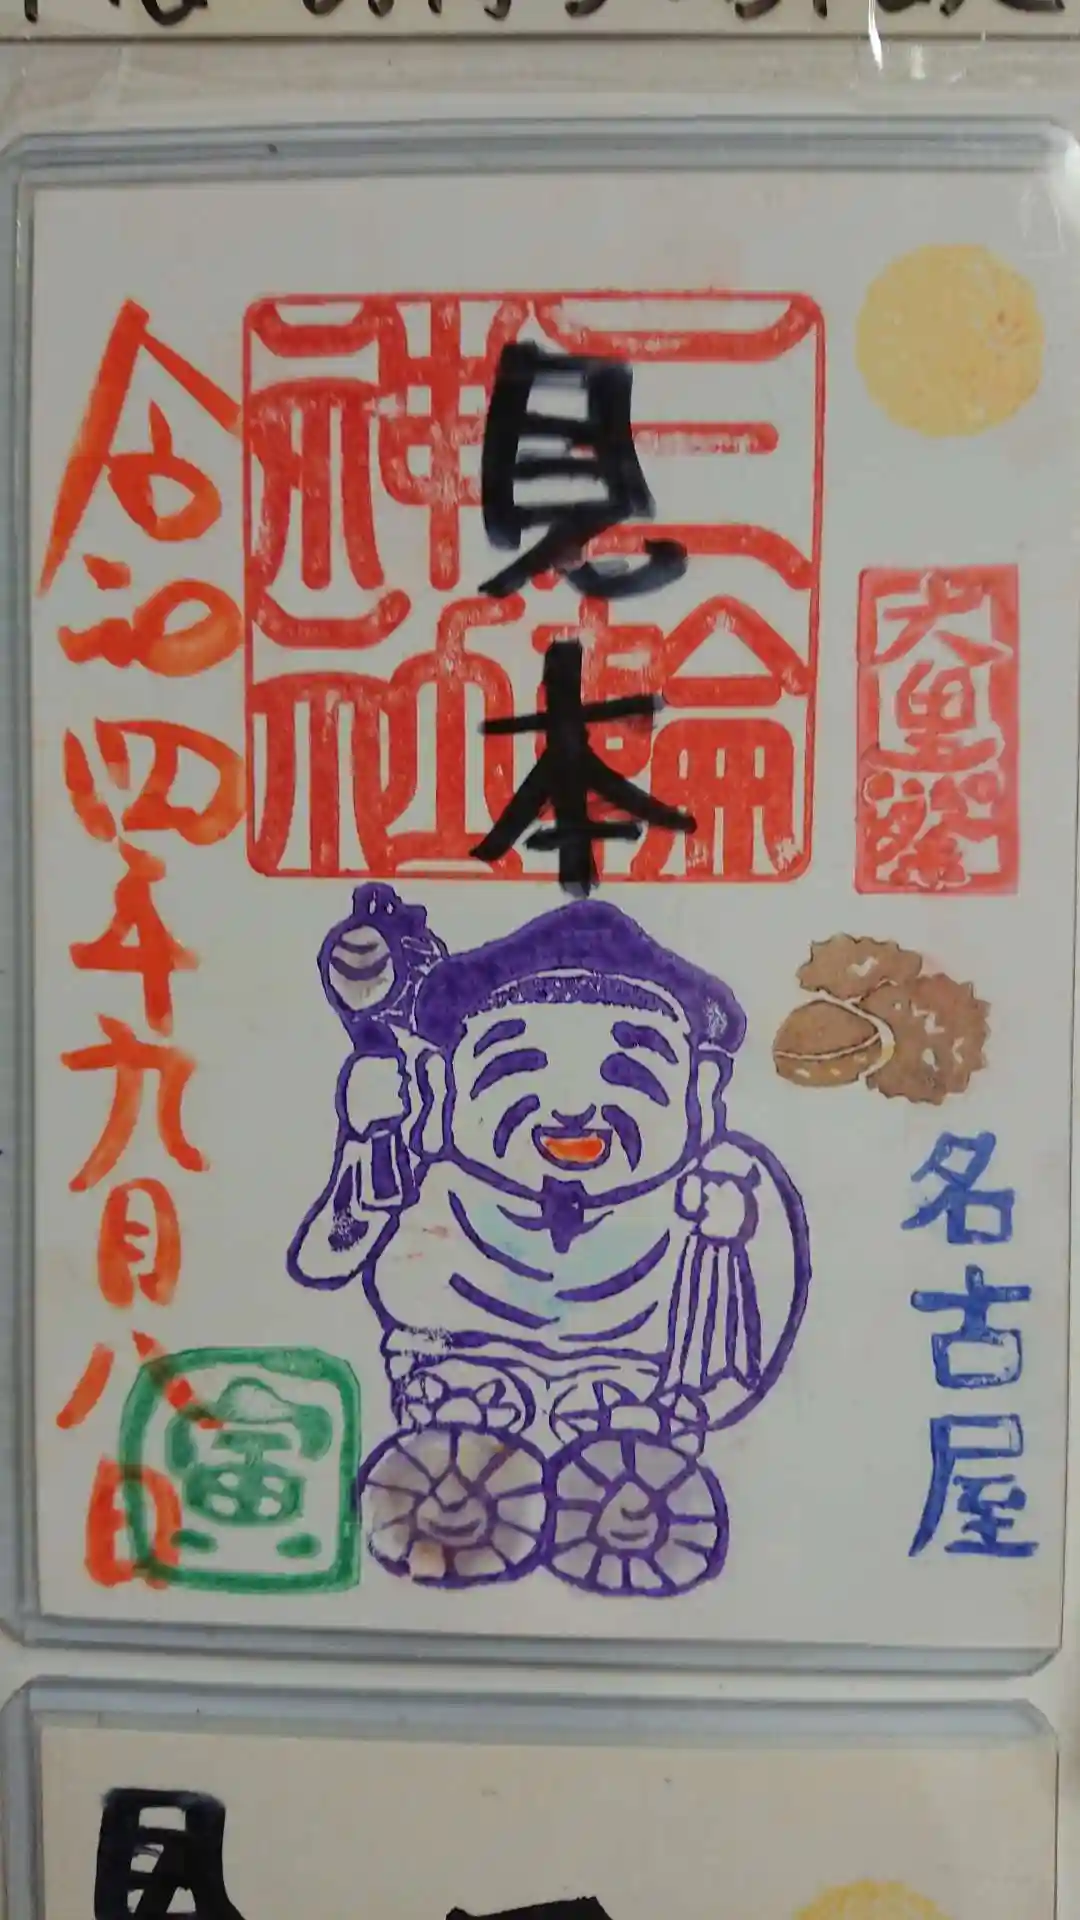 三輪
神社
見本
大黒祭
名古屋
令和四年九月八日
寅
見